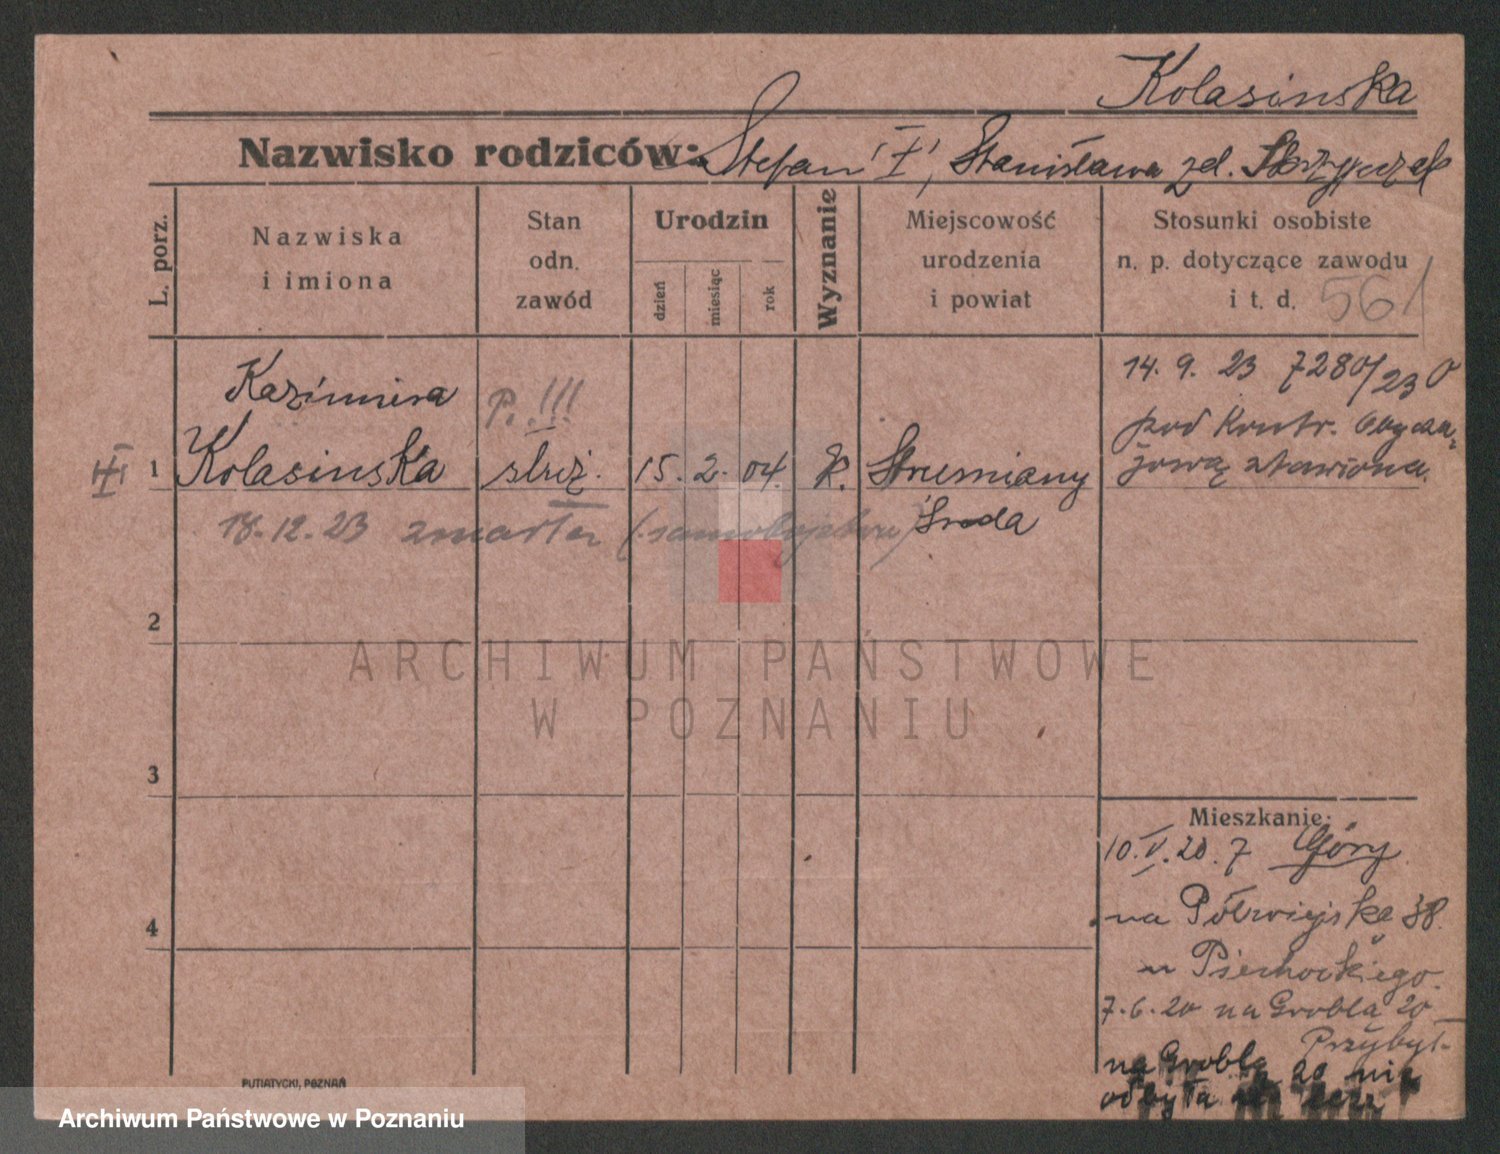 Kolasinska
Nazwisko rodziców: Stefan '†', Stanisława zd. Skrzypczak
L. porz.
Nazwiska
i imiona
Stan
odn.
zawód
Urodzin
dzień
miesiąc
rok
Wyznanie
Miejscowość
urodzenia
i powiat
Stosunki osobiste
n. p. dotyczące zawodu
i t. d. 561
Kazimiera
P. !!!
14. 9. 23 7280/23 O
pod kontr. obycza-
III 1 Kolasinska służ. 15. 2. 04. k. Strumiany
jową stawiona.
18.12.23 zmarła (samobójstwo)
Środa
2
3
4
ARCHIWUM PAŃSTWOWE
W POZNANIU
Mieszkanie:
10.V.20. z Góry
na Półwiejską 38.
u Piechockiego.
7.6.20 na Grobla 20
Przybył-
na Groblę 20 nie
odbyła
PUTIATYCKI, POZNAŃ
Archiwum Państwowe w Poznaniu